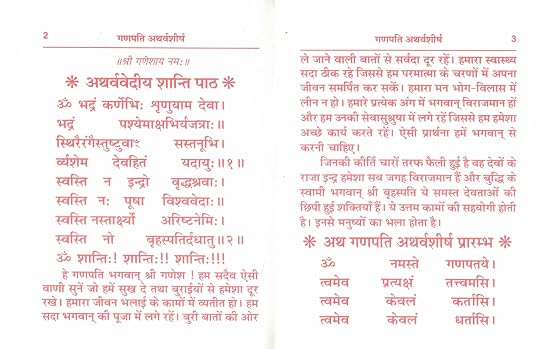 2
गणपति अथर्वशीर्ष
॥श्री गणेशाय नमः॥
❋ अथर्ववेदीय शान्ति पाठ ❋
ॐ भद्रं कर्णेभिः शृणुयाम देवा।
भद्रं पश्येमाक्षभिर्यजत्राः।
स्थिरैरंगैस्तुष्टुवाꣳ सस्तनूभि।
र्व्यशेम देवहितं यदायुः॥१॥
स्वस्ति न इन्द्रो वृद्धश्रवाः।
स्वस्ति नः पूषा विश्ववेदाः।
स्वस्ति नस्तार्क्ष्यो अरिष्टनेमिः।
स्वस्ति नो बृहस्पतिर्दधातु॥२॥
ॐ शान्तिः! शान्तिः!! शान्तिः!!!
हे गणपति भगवान् श्री गणेश ! हम सदैव ऐसी
वाणी सुनें जो हमें सुख दे तथा बुराईयों से हमेशा दूर
रखे। हमारा जीवन भलाई के कामों में व्यतीत हो। हम
सदा भगवान् की पूजा में लगे रहें। बुरी बातों की ओर
गणपति अथर्वशीर्ष
3
ले जाने वाली बातों से सर्वदा दूर रहें। हमारा स्वास्थ्य
सदा ठीक रहे जिससे हम परमात्मा के चरणों में अपना
जीवन समर्पित कर सकें। हमारा मन भोग-विलास में
लीन न हो। हमारे प्रत्येक अंग में भगवान् विराजमान हों
और हम उनकी सेवासुश्रुषा में लगे रहें जिससे हम हमेशा
अच्छे कार्य करते रहें। ऐसी प्रार्थना हमें भगवान् से
करनी चाहिए।
जिनकी कीर्ति चारों तरफ फैली हुई है वह देवों के
राजा इन्द्र हमेशा सब जगह विराजमान हैं और बुद्धि के
स्वामी भगवान् श्री बृहस्पति ये समस्त देवताओं की
छिपी हुई शक्तियाँ हैं। ये उत्तम कामों की सहयोगी होती
है। इनसे मनुष्यों का भला होता है।
❋ अथ गणपति अथर्वशीर्ष प्रारम्भ ❋
ॐ नमस्ते गणपतये।
त्वमेव प्रत्यक्षं तत्त्वमसि।
त्वमेव केवलं कर्तासि।
त्वमेव केवलं धर्तासि।